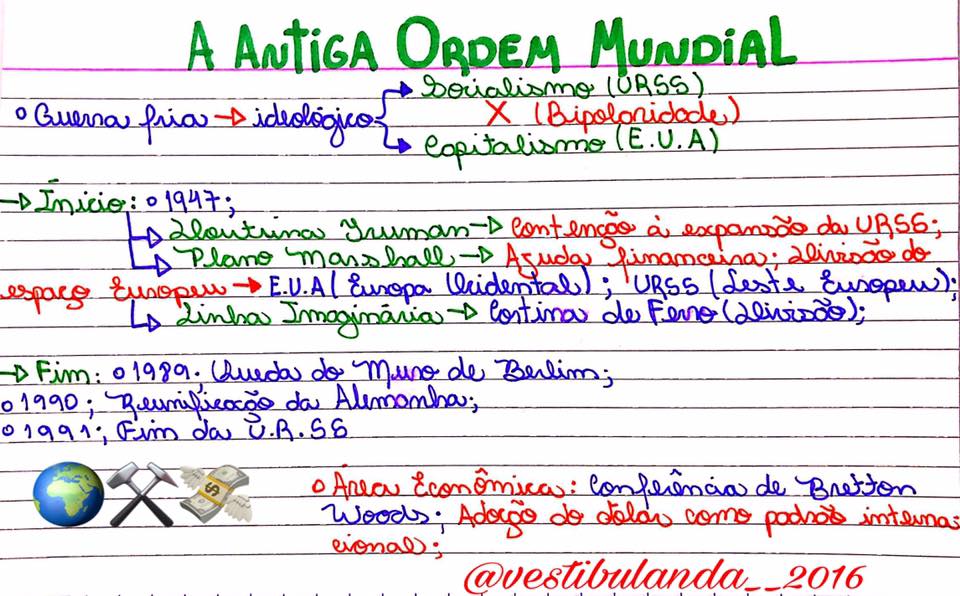 A ANTIGA ORDEM MUNDIAL
Socialismo (URSS)
Guerra fria → ideológico X (Bipolaridade)
Capitalismo (E.U.A)
→ Início: 1947;
Doutrina Truman → Contenção à expansão da URSS;
Plano Marshall → Ajuda financeira; Divisão do
espaço Europeu → E.U.A (Europa Ocidental); URSS (Leste Europeu);
Linha Imaginária → Cortina de Ferro (Divisão);
→ Fim: 1989; Queda do Muro de Berlim;
1990; Reunificação da Alemanha;
1991; Fim da U.R.SS
Área Econômica: Conferência de Bretton
Woods; Adoção do dólar como padrão interna
cional;
@vestibulanda__2016